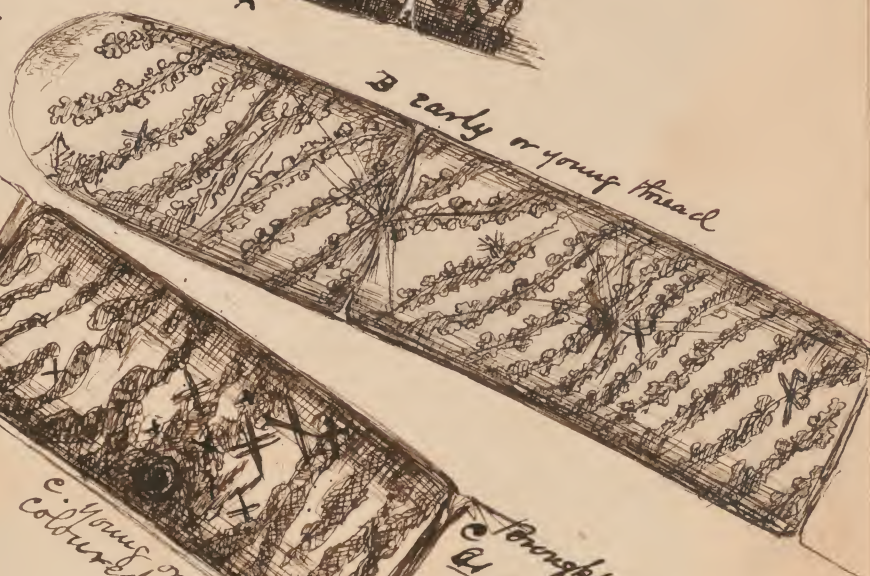 B early or young thread
C. young or
coloured
C
as